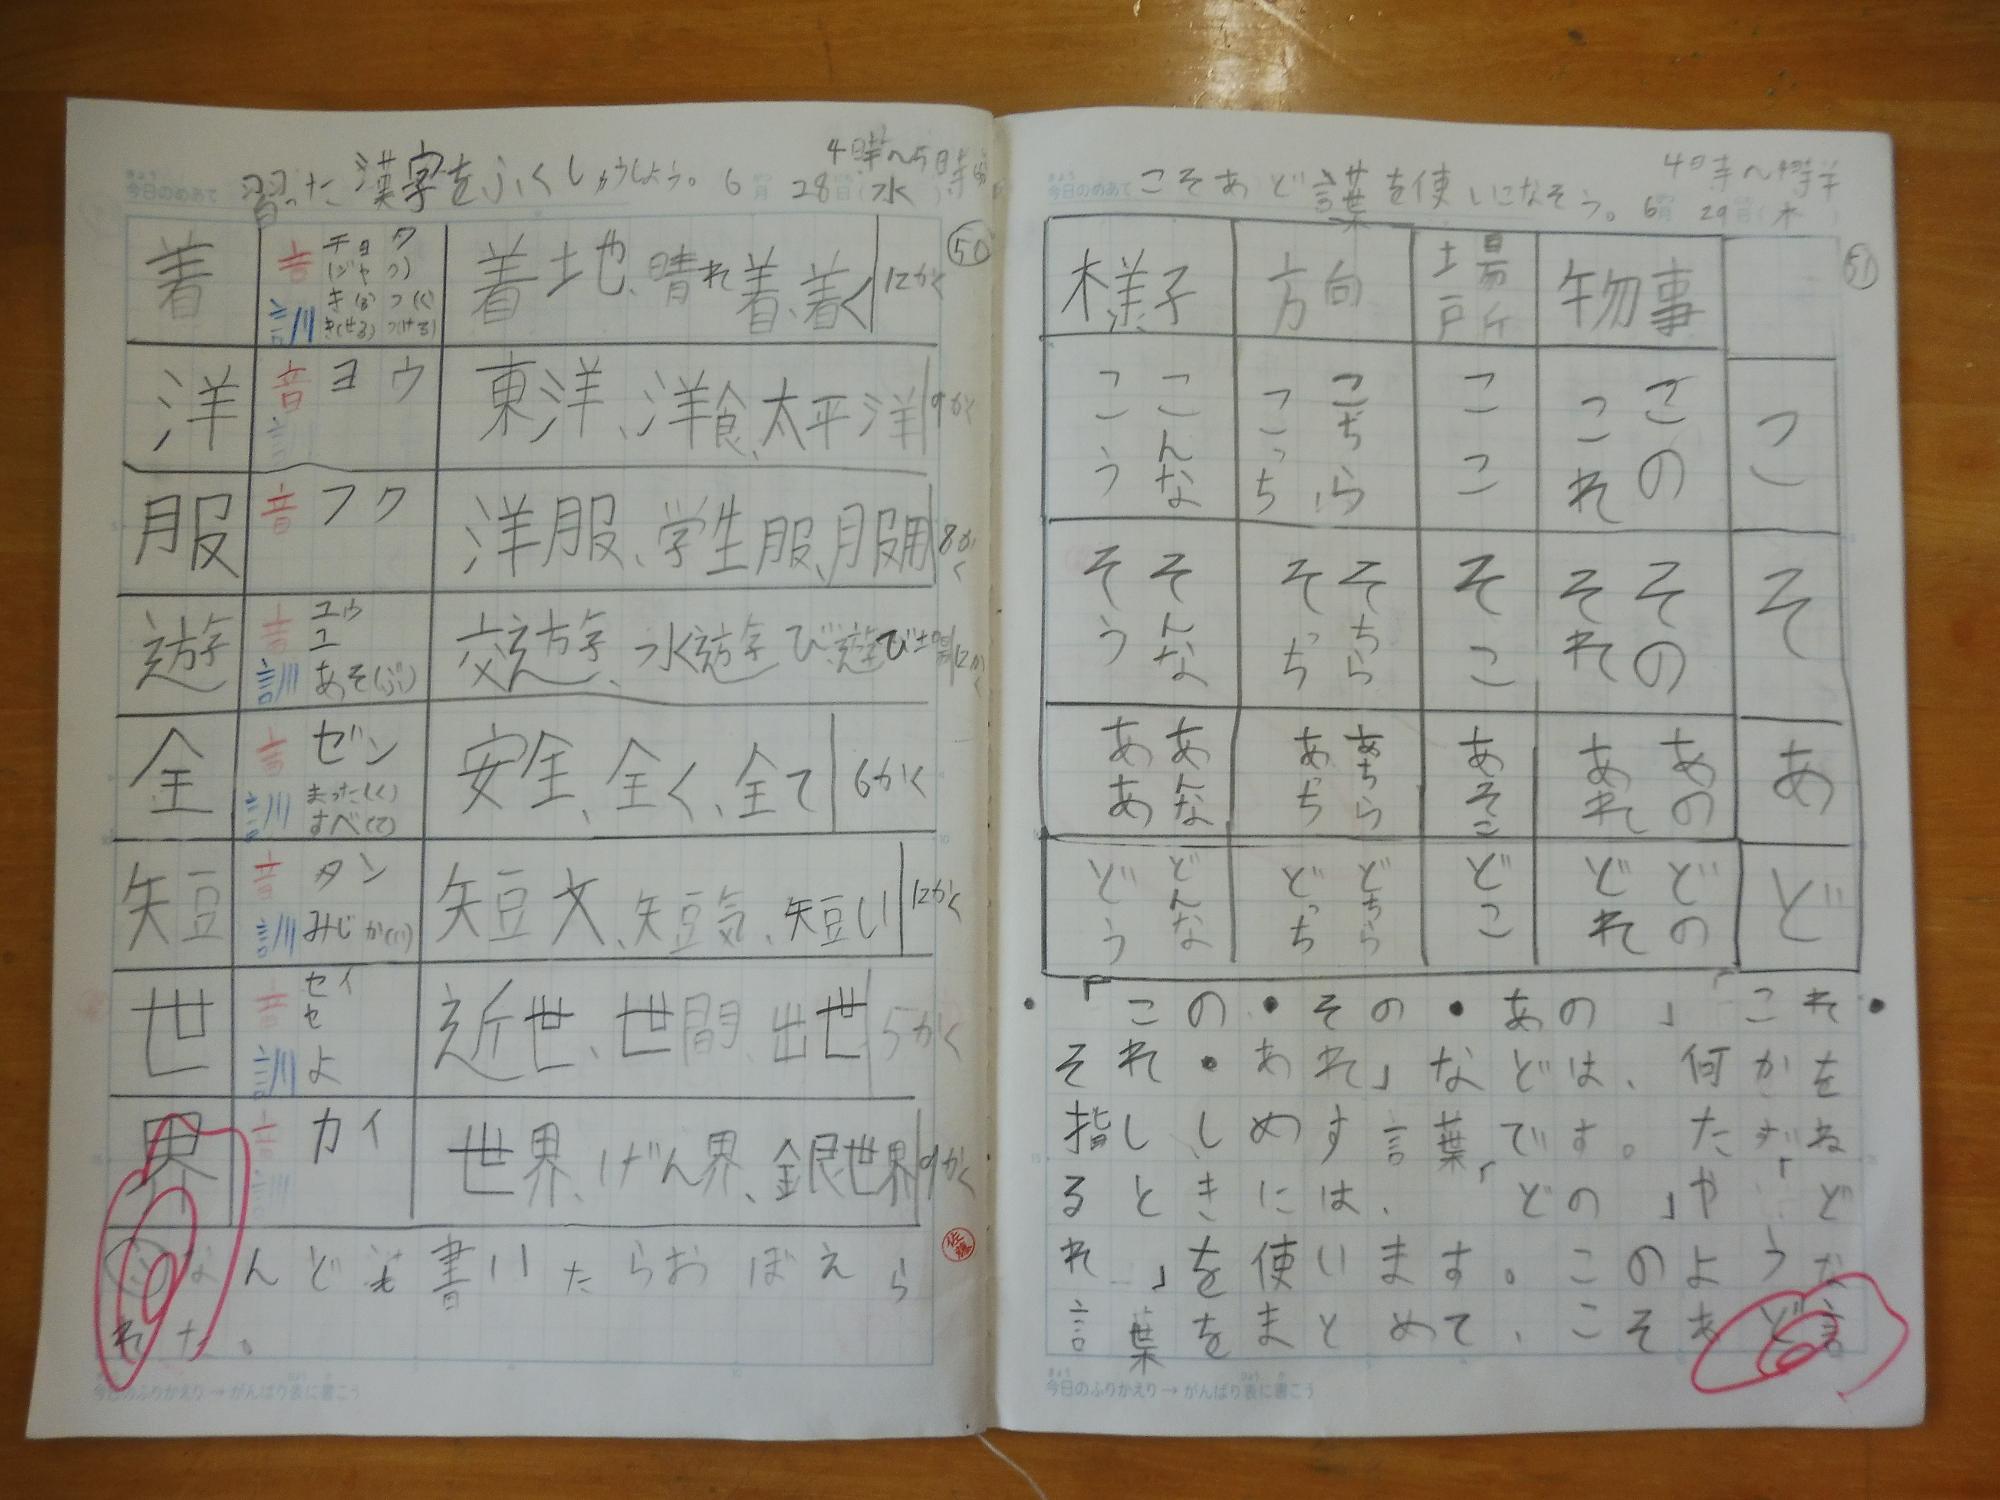 4時〜5時
今日のめあて 習った漢字をふくしゅうしよう。 6月 28日(水)
50
着 音 チャク (ジャク) 訓 き(る) つ(く) き(せる) つ(ける) 着地、晴れ着、着く 12かく
洋 音 ヨウ 訓 東洋、洋食、太平洋 9かく
服 音 フク 洋服、学生服、服用 8かく
遊 音 ユウ ユ 訓 あそ(ぶ) 交遊、水遊び、遊び場 12かく
全 音 ゼン 訓 まった(く) すべ(て) 安全、全く、全て 6かく
短 音 タン 訓 みじか(い) 短文、短気、短い 12かく
世 音 セイ セ 訓 よ 近世、世間、出世 5かく
界 音 カイ 訓 世界、げん界、銀世界 9かく
なんども書いたらおぼえら
れた。
今日のふりかえり→がんばり表に書こう
4時〜
今日のめあて こそあど言葉を使いこなそう。 6月 29日(木)
51
様子 方向 場所 物事
こう こんな こっち こちら ここ これ この こ
そう そんな そっち そちら そこ それ その そ
ああ あんな あっち あちら あそこ あれ あの あ
どう どんな どっち どちら どこ どれ どの ど
・「この・その・あの」「これ・
それ・あれ」などは、何かを
指ししめす言葉です。たずね
るときには、「どの」や「ど
れ」を使います。このような
言葉をまとめて、こそあど言
今日のふりかえり→がんばり表に書こう